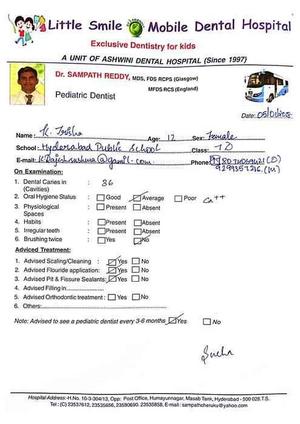 Little Smile Mobile Dental Hospital
Exclusive Dentistry for kids
A UNIT OF ASHWINI DENTAL HOSPITAL (Since 1997)
Dr. SAMPATH REDDY, MDS, FDS RCPS (Glasgow)
MFDS RCS (England)
Pediatric Dentist
Date:
Name: K. Age: 12 Sex: Female
School: Hyderabad Public School Class: 7 D
E-mail: Phone:
On Examination:
1. Dental Caries in (Cavities) : 36
2. Oral Hygiene Status : Good Average Poor Ca++
3. Physiological Spaces : Present Absent
4. Habits : Present Absent
5. Irregular teeth : Present Absent
6. Brushing twice : Yes No
Adviced Treatment:
1. Advised Scaling/Cleaning : Yes No
2. Advised Flouride application: Yes No
3. Advised Pit & Fissure Sealants: Yes No
4. Advised Filling in
5. Advised Orthodontic treatment : Yes No
6. Others:
Note: Advised to see a pediatric dentist every 3-6 months Yes No
Hospital Address: H.No. 10-3-304/13, Opp: Post.Office, Humayunnagar, Masab Tank, Hyderabad - 500 028.T.S.
Tel: (C) 23537612, 23535656, 23580690, 23535858, E-mail: sampathcheruku@yahoo.com